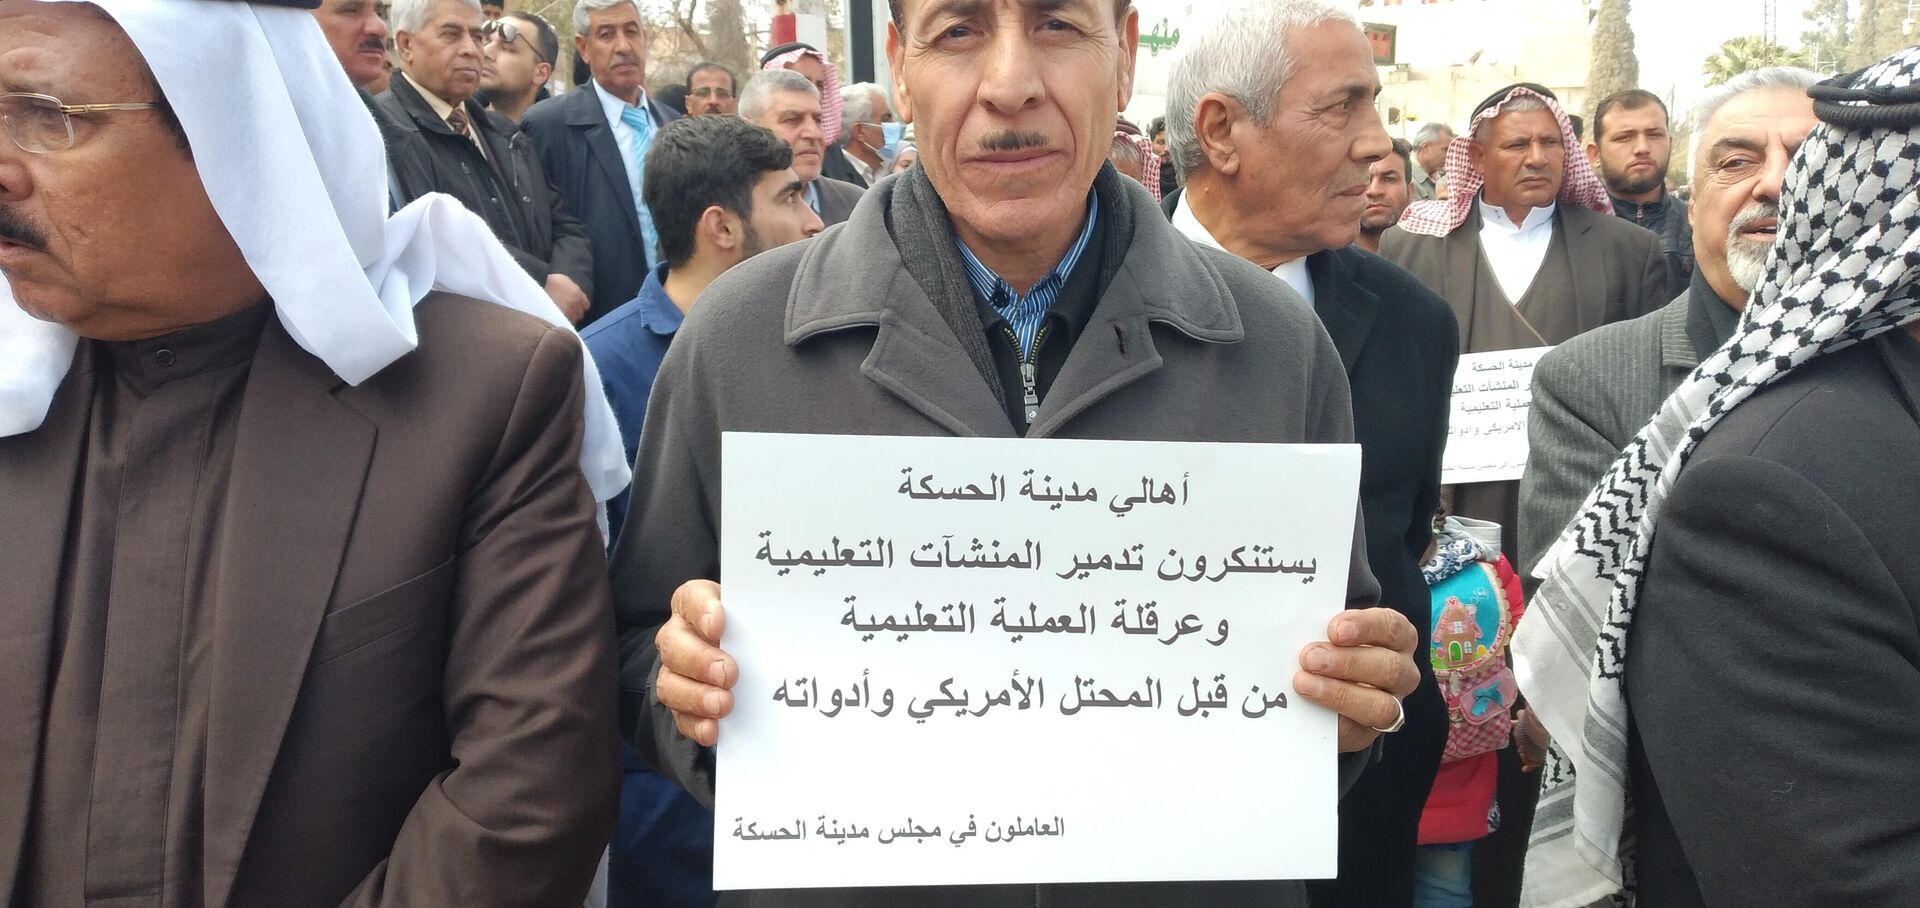 أهالي مدينة الحسكة
يستنكرون تدمير المنشآت التعليمية
وعرقلة العملية التعليمية
من قبل المحتل الأمريكي وأدواته
العاملون في مجلس مدينة الحسكة
مدينة الحسكة
المنشآت
العملية التعليمية
الامريكي